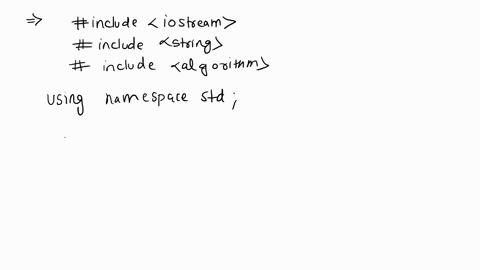 => #include <iostream>
# include <string>
# include <algorithm>
using namespace std;